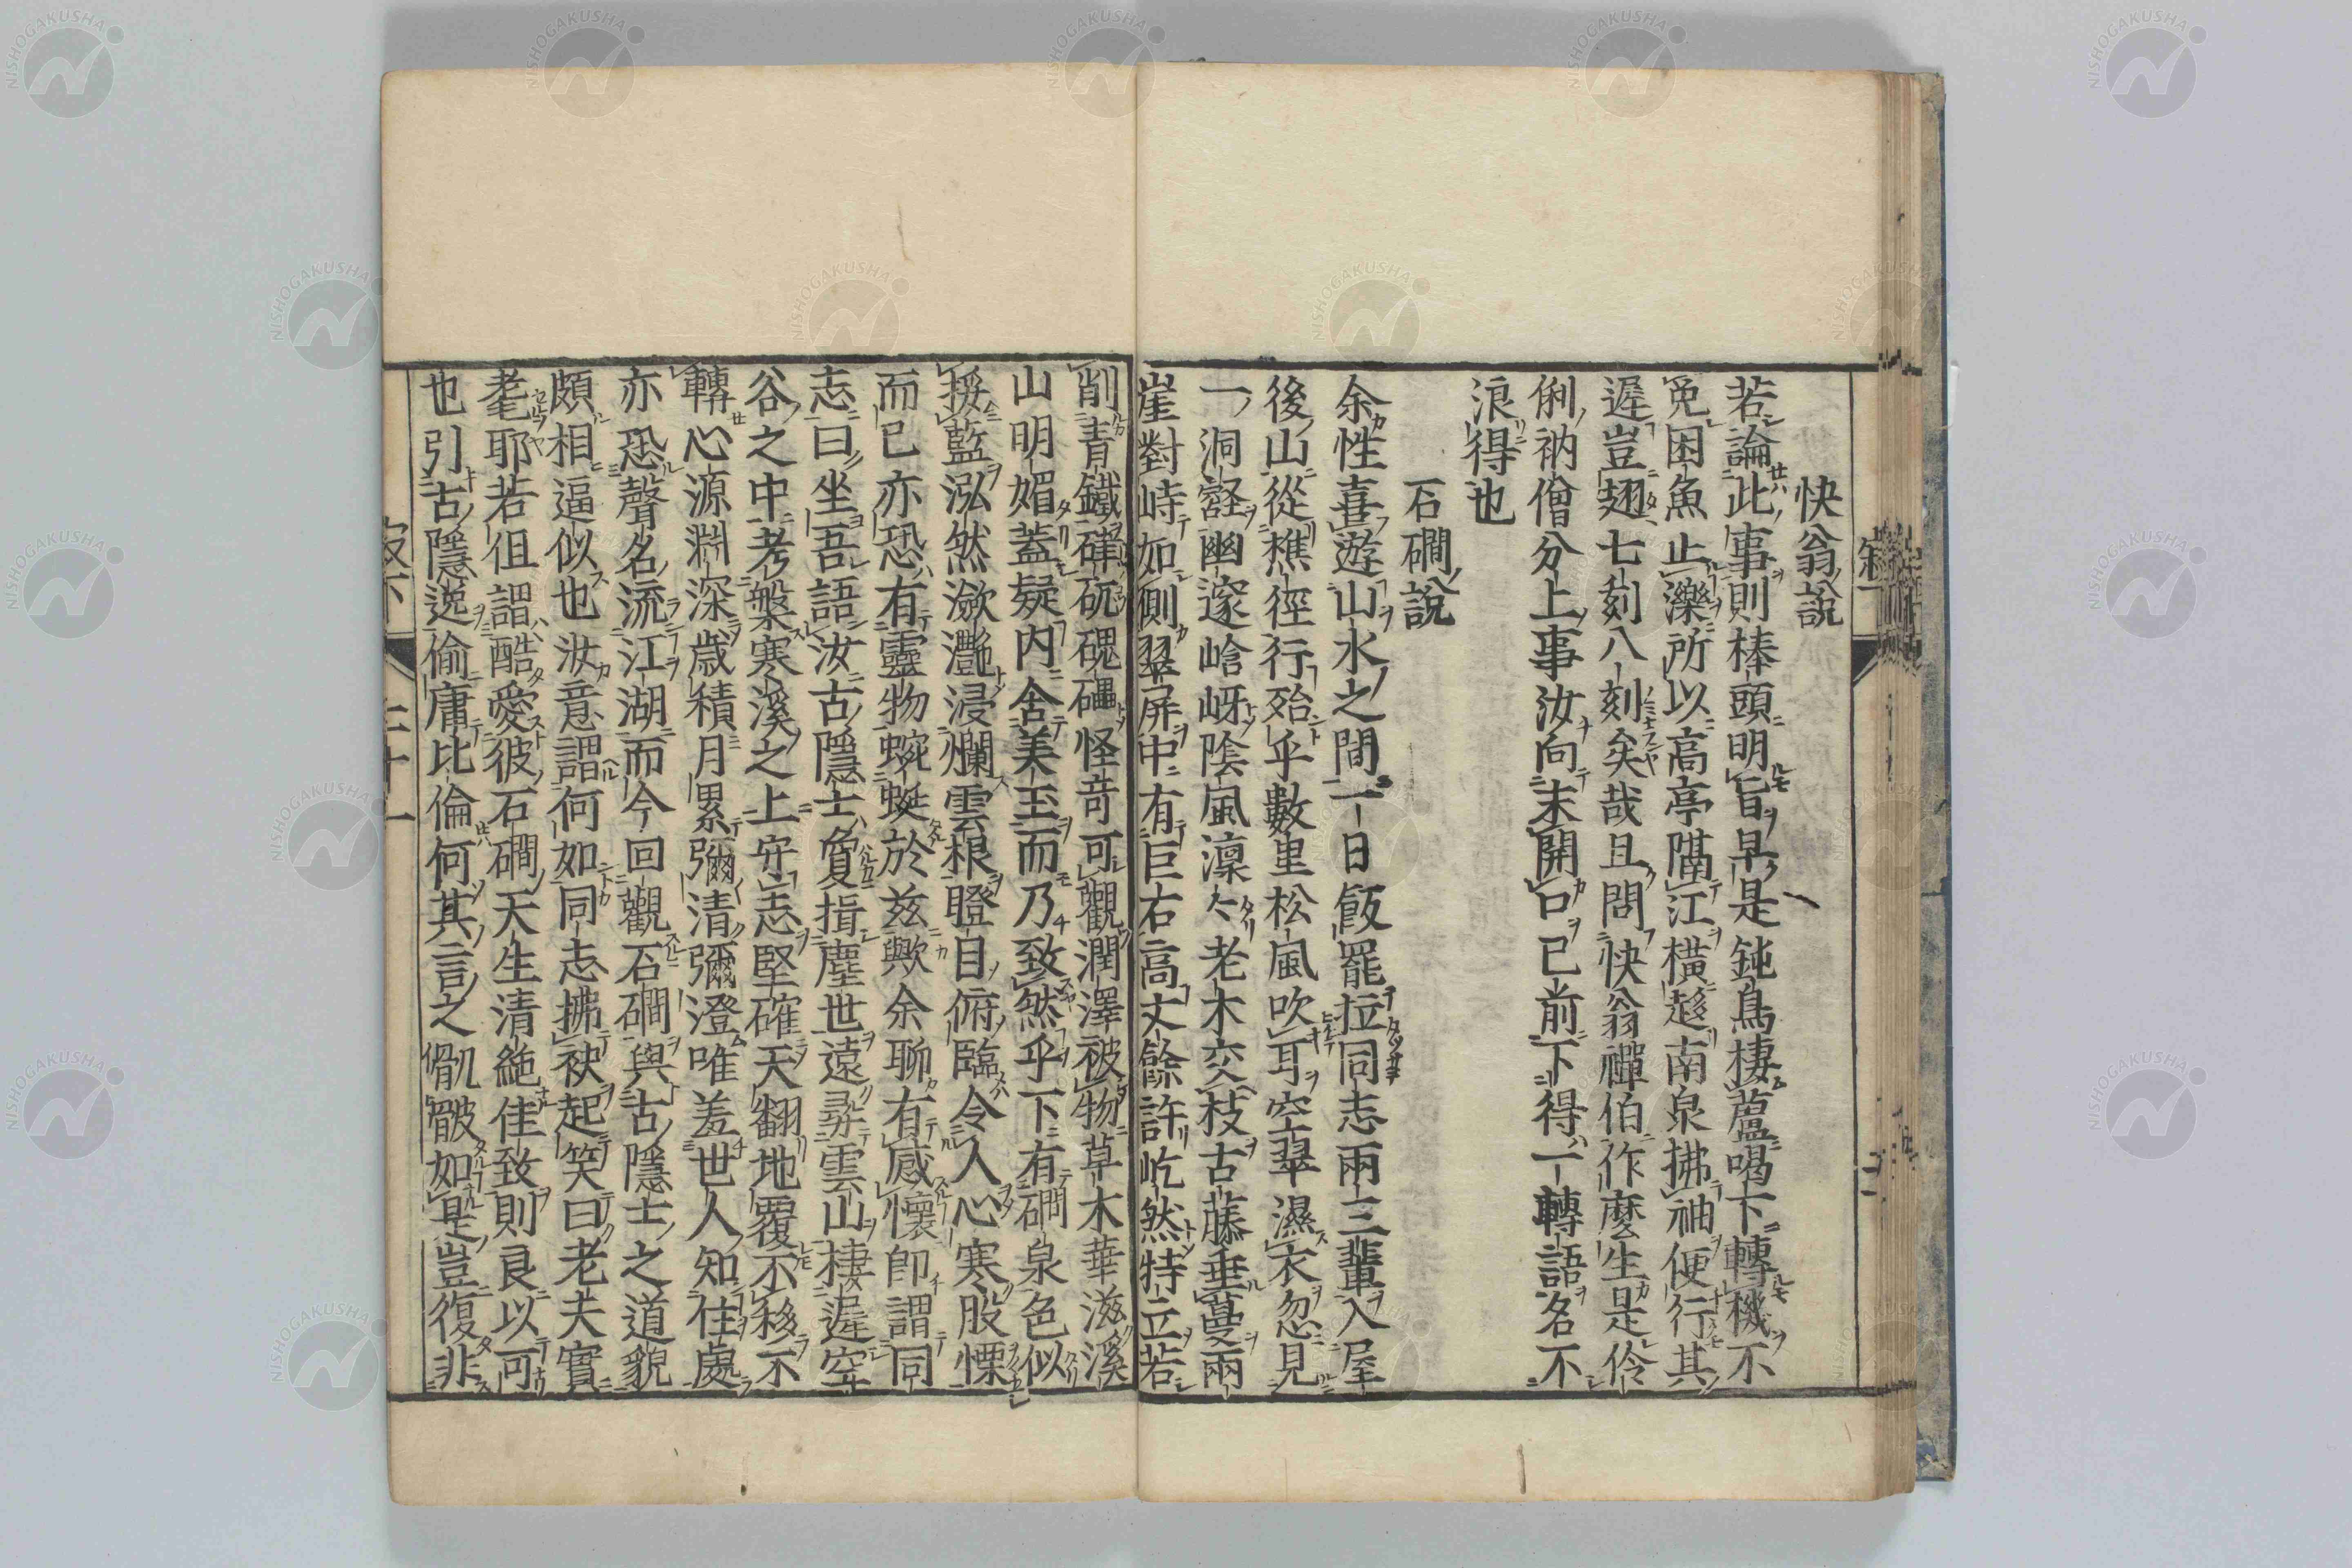 快翁說
若論此事則棒頭明旨早是鈍鳥棲蘆喝下轉機不
免困魚止濼所以高亭隔江橫趍南泉拂袖便行其
遲豈翅七刻八刻矣哉且問快翁禪伯作麼生是伶
俐衲僧分上事汝向未開口已前下得一轉語名不
浪得也
石磵說
余性喜遊山水之間一日飯罷拉同志兩三輩入屋
後山從樵徑行殆乎數里松風吹耳空翠濕衣忽見
一洞谿幽邃峆岈陰風凜々老木交枝古藤垂蔓兩
崖對峙如側翠屏中有巨石高丈餘許屹然特立若
削青鐵硉矹磈礧怪奇可觀潤澤被物草木華滋溪
山明媚蓋疑內含美玉而乃致然乎下有磵泉色似
挼藍泓然瀲灩浸爛雲根瞪目俯臨令人心寒股慄
而已亦恐有靈物蜿蜒於茲歟余聊有感懷即謂同
志曰坐吾語汝古隱士負揖塵世遠尋雲山棲遲空
谷之中考槃寒溪之上守志堅確天翻地覆不移不
轉心源淵深歲積月累彌清彌澄唯羞世人知住處
亦恐聲名流江湖而今回觀石磵與古隱士之道貌
頗相逼似也汝意謂何如同志拂袂起笑曰老夫實
耄耶若徂謂酷愛彼石磵天生清絶佳致則良以可
也引古隱逸偷庸比倫何其言之骪骳如是豈復非
二十一